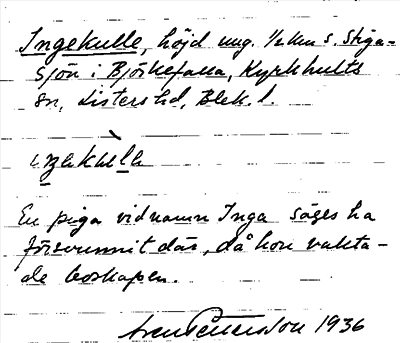 Ingekulle, höjd ung. ½ km s. Stiga-
sjön i Björkefalla, Kyrkhults
sn, Listers hd, Blek. l.
En piga vid namn Inga säges ha
försvunnit där, då hon vakta-
de boskapen.
1936